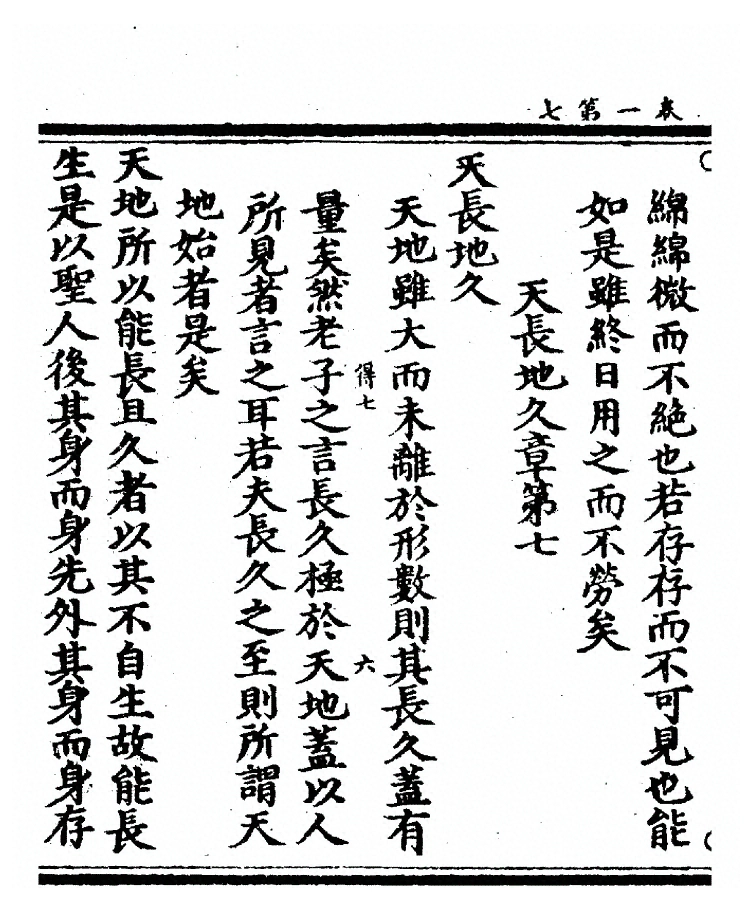 卷一第七
綿綿微而不絕也若存存而不可見也能
如是雖終日用之而不勞矣
天長地久章第七
天長地久
天地雖大而未離於形數則其長久蓋有
得七
六
量矣然老子之言長久極於天地蓋以人
所見者言之耳若夫長久之至則所謂天
地始者是矣
天地所以能長且久者以其不自生故能長
生是以聖人後其身而身先外其身而身存